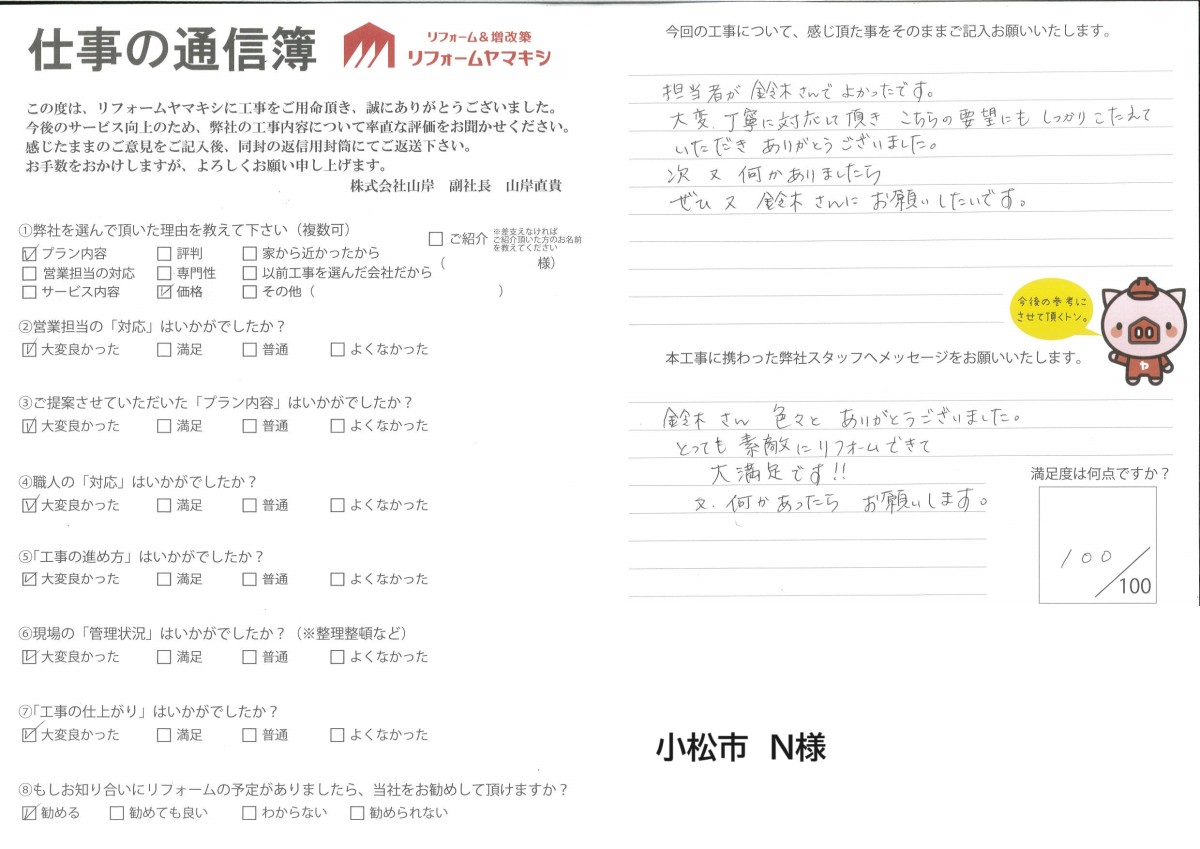 仕事の通信簿
リフォーム&増改築
リフォームヤマキシ
この度は、リフォームヤマキシに工事をご用命頂き、誠にありがとうございました。
今後のサービス向上のため、弊社の工事内容について率直な評価をお聞かせください。
感じたままのご意見をご記入後、同封の返信用封筒にてご返送下さい。
お手数をおかけしますが、よろしくお願い申し上げます。
株式会社山岸 副社長 山岸直貴
①弊社を選んで頂いた理由を教えて下さい(複数可)
☑プラン内容 □評判 □家から近かったから
□営業担当の対応 □専門性 □以前工事を選んだ会社だから
□サービス内容 ☑価格 □その他( )
□ご紹介
※差支えなければ
ご紹介頂いた方のお名前
を教えてください
( 様)
②営業担当の「対応」はいかがでしたか?
☑大変良かった □満足 □普通 □よくなかった
③ご提案させていただいた「プラン内容」はいかがでしたか?
☑大変良かった □満足 □普通 □よくなかった
④職人の「対応」はいかがでしたか?
☑大変良かった □満足 □普通 □よくなかった
⑤「工事の進め方」はいかがでしたか?
☑大変良かった □満足 □普通 □よくなかった
⑥現場の「管理状況」はいかがでしたか?(※整理整頓など)
☑大変良かった □満足 □普通 □よくなかった
⑦「工事の仕上がり」はいかがでしたか?
☑大変良かった □満足 □普通 □よくなかった
⑧もしお知り合いにリフォームの予定がありましたら、当社をお勧めして頂けますか?
☑勧める □勧めても良い □わからない □勧められない
今回の工事について、感じ頂た事をそのままご記入お願いいたします。
担当者が 鈴木さんで よかったです。
大変、丁寧に対応して頂き こちらの要望にも しっかりこたえて
いただき ありがとうございました。
次 又 何かありましたら
ぜひ 又 鈴木さんに お願いしたいです。
今後の参考に
させて頂くトン。
ヤ
本工事に携わった弊社スタッフへメッセージをお願いいたします。
鈴木さん 色々と ありがとうございました。
とっても 素敵にリフォームできて
大満足です!!
又、何かあったら お願いします。
満足度は何点ですか?
100/100
小松市 N様